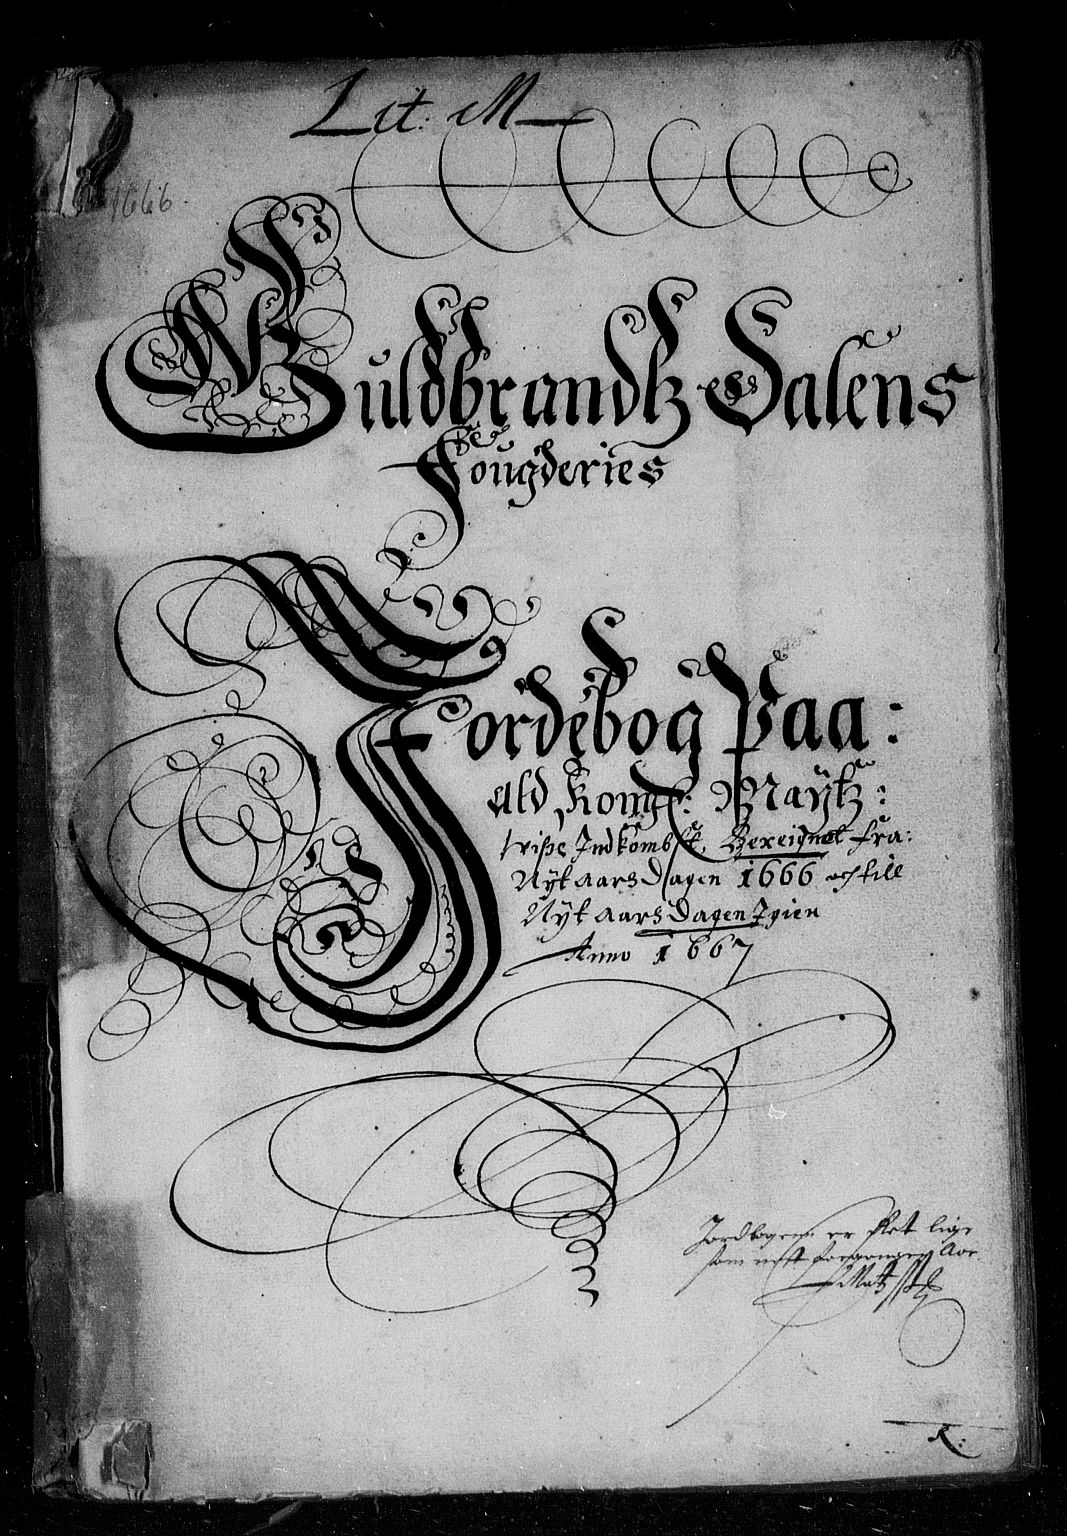 Lit: M
1666
Guldbrandtz Dalens
Fougderies
Jordebog Paa:
Ald Kong: Maytz:
wiße Indkombst, Bereignet fra:
Nyt aars Dagen 1666 och till
Nyt aars Dagen Igien
Anno 1667
Jordbogenn er Ret lige
som nest forgangen Aar